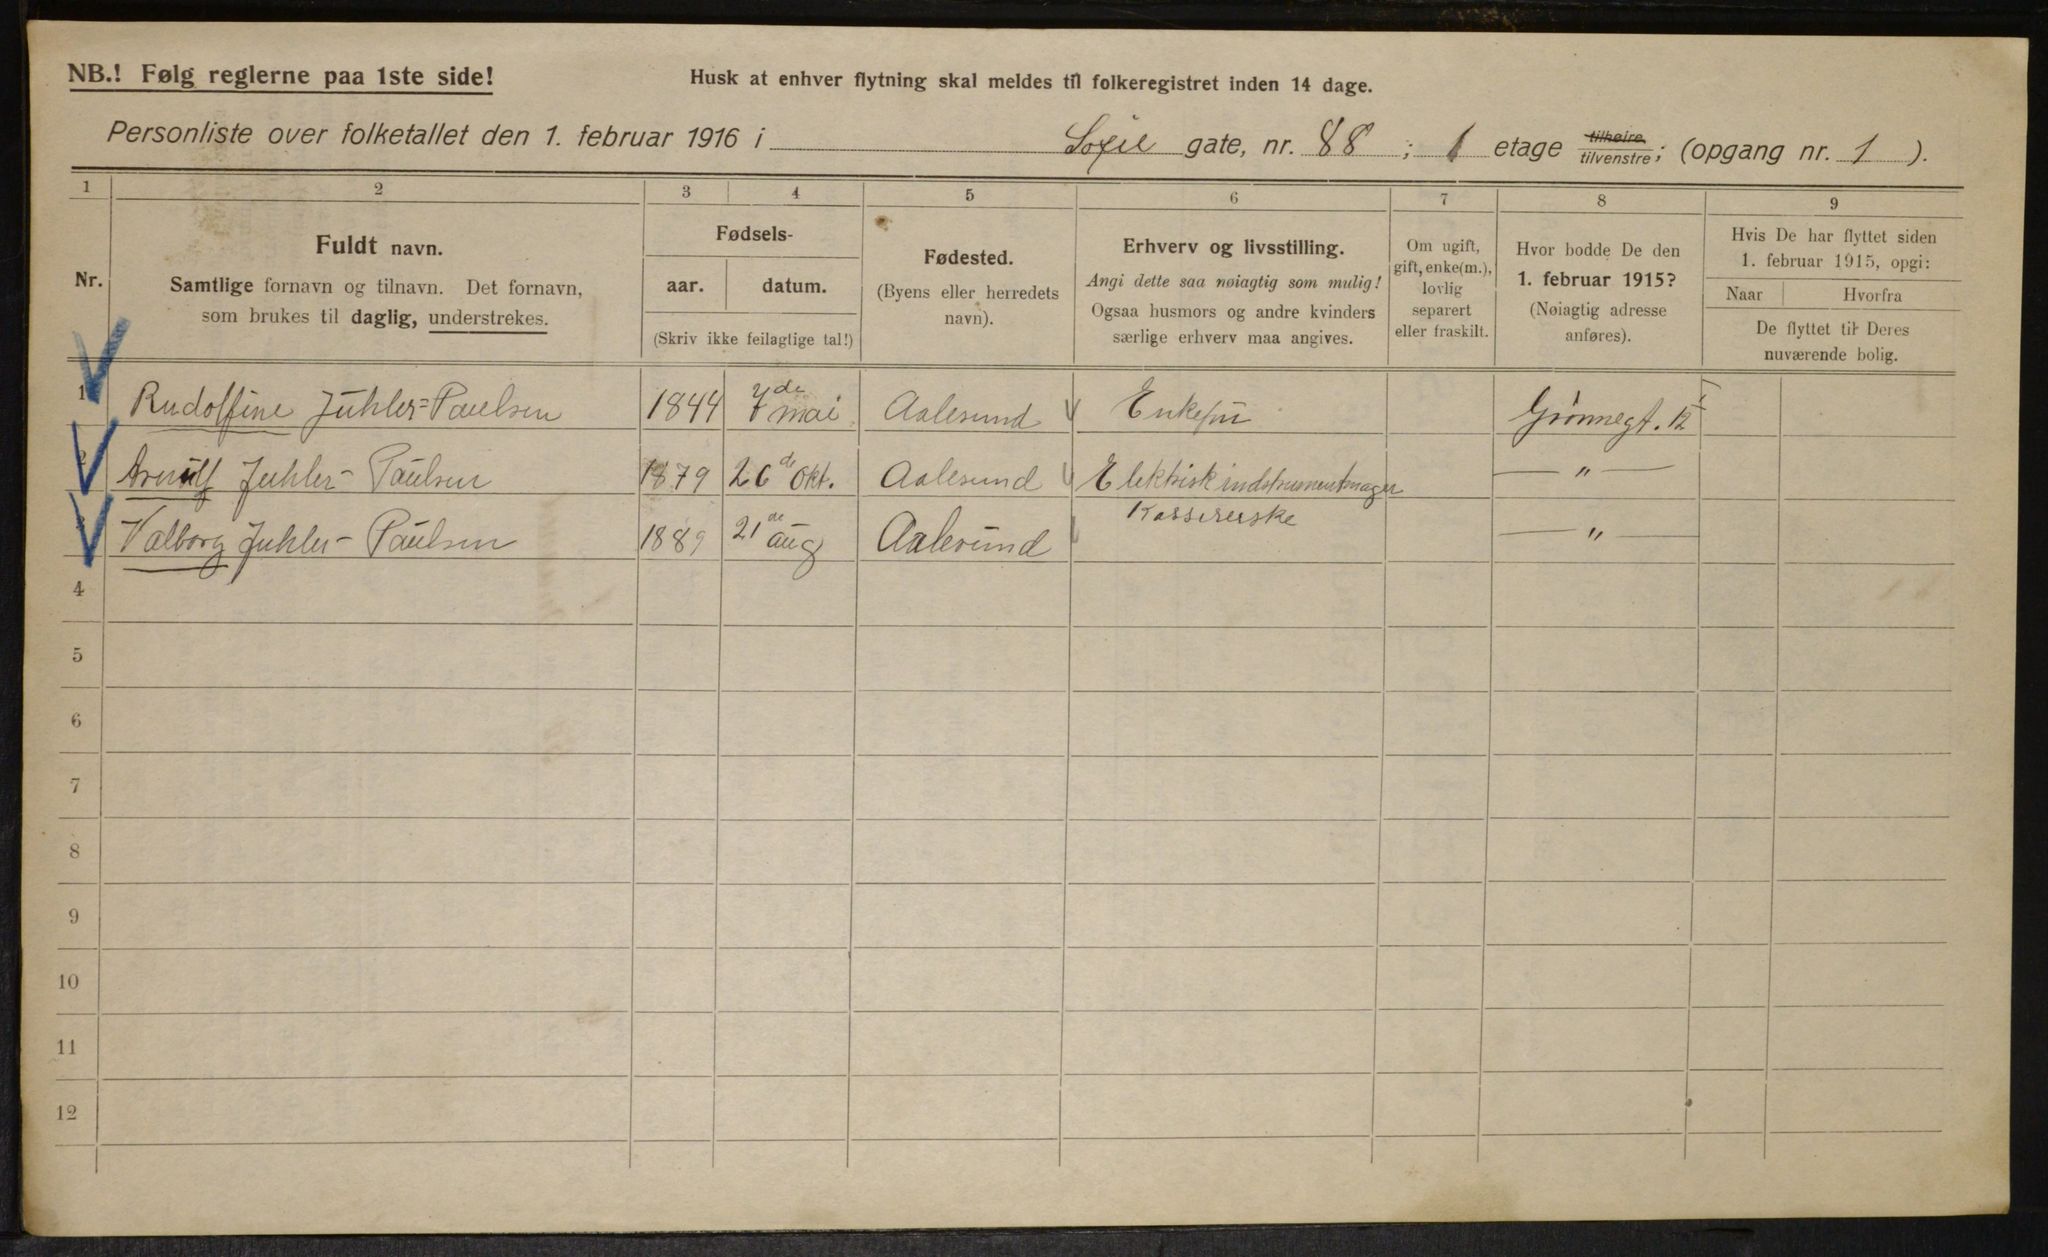 NB.! Følg reglerne paa 1ste side!
Husk at enhver flytning skal meldes til folkeregistret inden 14 dage.
Personliste over folketallet den 1. februar 1916 i Sofie gate, nr. 88 ; 1 etage tilhøire tilvenstre; (opgang nr. 1 ).
1 2 3 4 5 6 7 8 9
Nr.
Fuldt navn.
Samtlige fornavn og tilnavn. Det fornavn,
som brukes til daglig, understrekes.
Fødsels-
aar. datum.
(Skriv ikke feilagtige tal!)
Fødested.
(Byens eller herredets
navn).
Erhverv og livsstilling.
Angi dette saa nøiagtig som mulig!
Ogsaa husmors og andre kvinders
særlige erhverv maa angives.
Om ugift,
gift, enke(m.),
lovlig
separert
eller fraskilt.
Hvor bodde De den
1. februar 1915?
(Nøiagtig adresse
anføres).
Hvis De har flyttet siden
1. februar 1915, opgi:
Naar Hvorfra
De flyttet til Deres
nuværende bolig.
1 Rudolfine Juhler=Paulsen 1844 7de mai Aalesund Enkefru Grønnegt. 12 I
2 Arnulf Juhler-Paulsen 1879 26de Okt. Aalesund Elektrisk indstrumentmager — " —
3 Valborg Juhler-Paulsen 1889 21de aug Aalesund Kassererske — " —
4
5
6
7
8
9
10
11
12